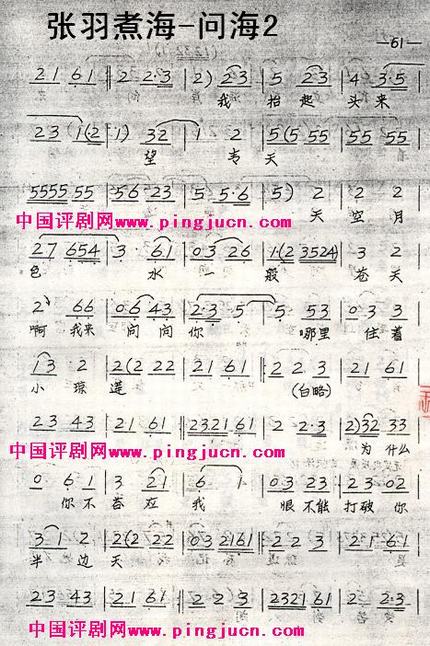 张羽煮海-问海2
—61—
2 1 6 1 | 2 2·3 | 2) 2 3 | 5 2 3 | 4 3·5
我 抬起 头来
2 3 (1(2 | 1) 3 2 | 1 2 | 5(5 55 | 55 55
望 青天
5555 55 | 56·23 | 5 5·6 | 5) 2 | 2 2
天 空月
中国评剧网www.pingjucn.com
2 7 654 | 3·61 | 03 26 | 1·(2 3524) | 3 2
色 水一 般 苍天
2 66 | 0·6 43 | 2·3·5 | 5·53 | 0 3 3
啊 我来 问问 你 哪里 住着
1 3·2 | 2(2 22 | 21 61 | 2 2 3 | 21 61
小 琼 莲 (白略)
2 3 43 | 21 61 | 2321 61 | 2 2·3 | 2) 32 33
中国评剧网www.pingjucn.com
为 什么
0 6 1 | 3 2 1 | 6 1 | 03 23 | 23·02
你不 答应 我 恨不能 打破 你
3 1 2 | 2(2 22 | 03 2161 | 2 2 3 | 2·1·61
半边 天
2·3 43 | 21 61 | 2 2·3 | 2321 61 | 2 2·3
中国评剧网www.pingjucn.com